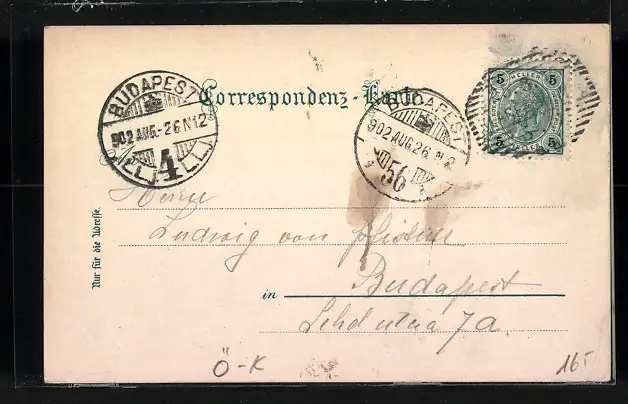 Correspondenz-Karte
BUDAPEST
902 AUG.-26 N12
4
BUDAPEST
902 AUG. 26 N 2
56
5 HELLER 5
5 5
Nur für die Adresse.
Herrn
Ludwig von
in Budapest
utca 7a.
Ö-K
165